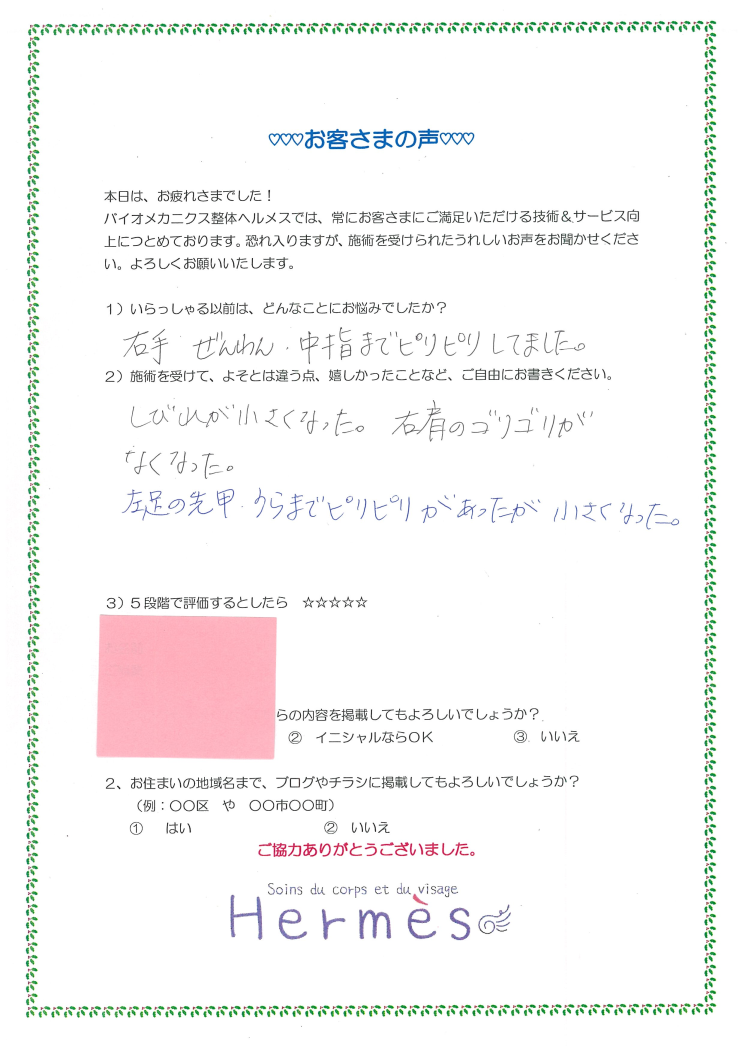 ♡♡♡お客さまの声♡♡♡
本日は、お疲れさまでした!
バイオメカニクス整体ヘルメスでは、常にお客さまにご満足いただける技術&サービス向
上につとめております。恐れ入りますが、施術を受けられたうれしいお声をお聞かせくださ
い。よろしくお願いいたします。
1)いらっしゃる以前は、どんなことにお悩みでしたか?
右手 ぜんわん・中指までピリピリしてました。
2)施術を受けて、よそとは違う点、嬉しかったことなど、ご自由にお書きください。
しびれが小さくなった。 右肩のゴリゴリが
なくなった。
左足の先甲・うらまでピリピリがあったが 小さくなった。
3)5段階で評価するとしたら ☆☆☆☆☆
らの内容を掲載してもよろしいでしょうか?
② イニシャルならOK ③ いいえ
2、お住まいの地域名まで、ブログやチラシに掲載してもよろしいでしょうか?
(例:〇〇区 や 〇〇市〇〇町)
① はい ② いいえ
ご協力ありがとうございました。
Soins du corps et du visage
Hermès